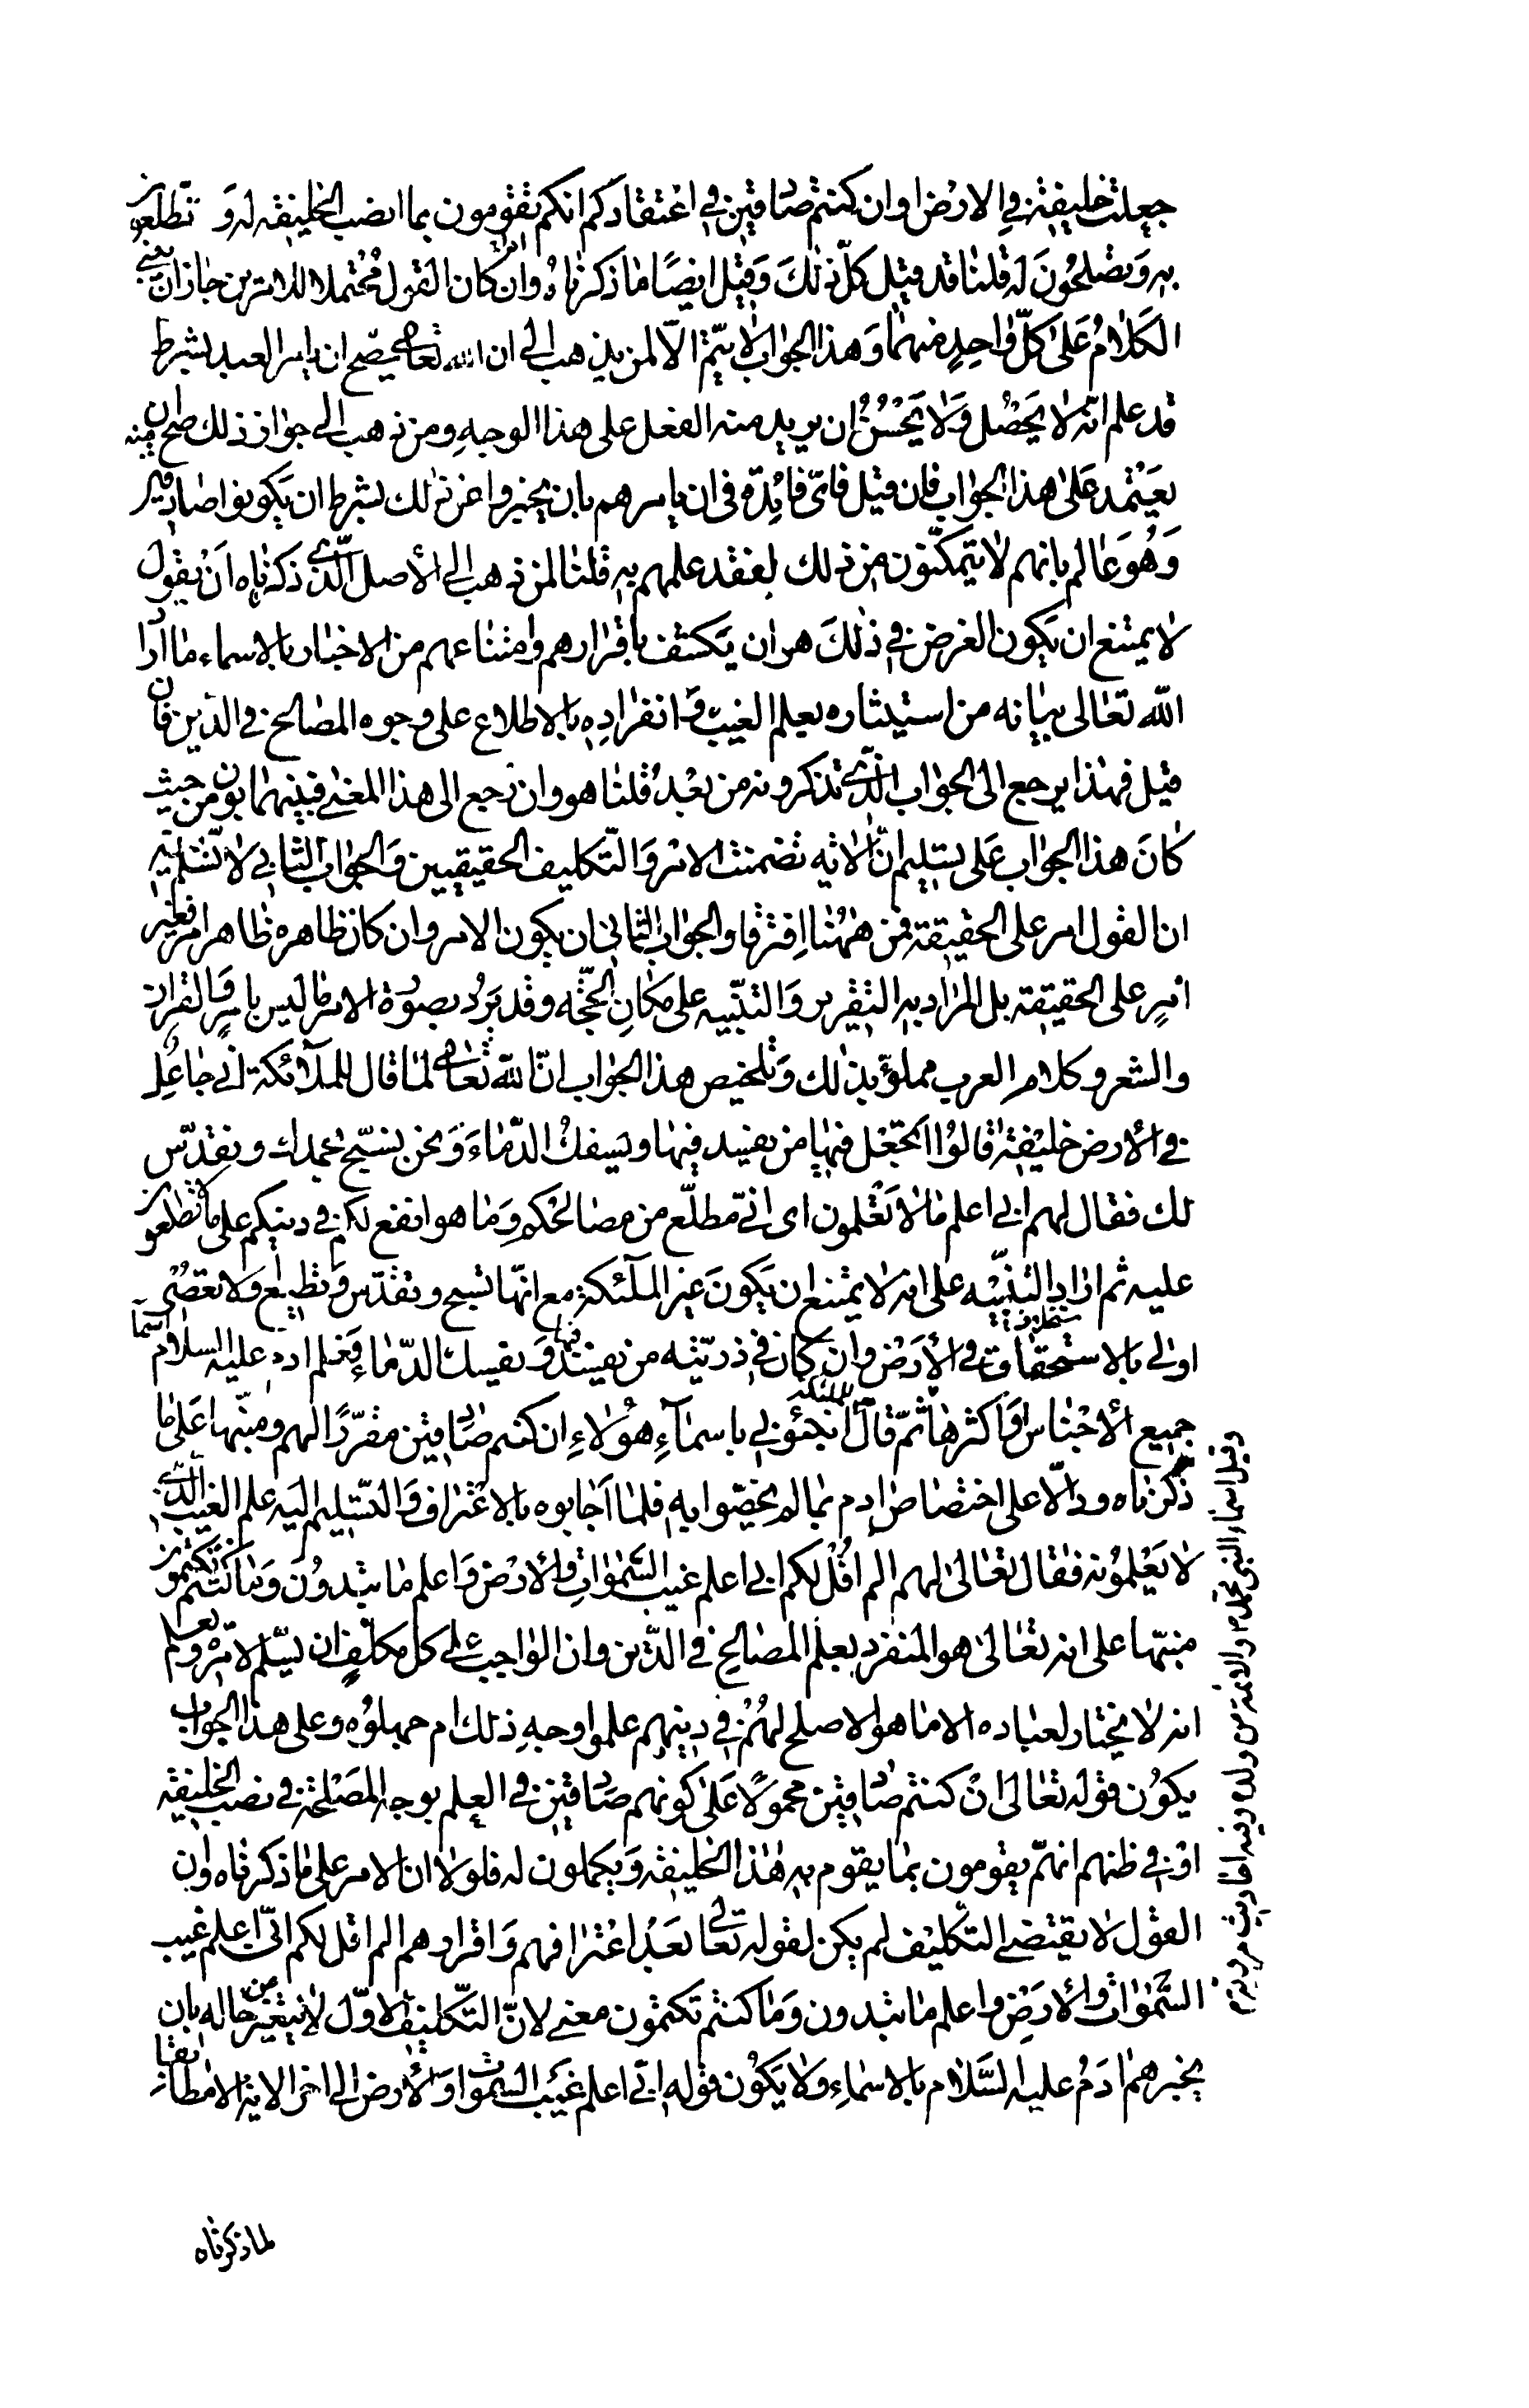 جعلت خليفة في الارض او ان كنتم صادقين في اعتقادكم انكم تقومون بما انصب الخليفة له و تطلعون
به وتصلحون له قلنا قد قيل كلّ ذلك وقيل ايضًا ما ذكرناه وان كان القول محتملا للامرين جاز ان يبنى
الكلام على كلّ واحدٍ منهما وهذا الجواب لا يتمّ الاّ لمن يذهب الى ان الله تعالى يصحّ ان يامر العبد بشرط
قد علم انّه لا يحصل ولا يحسن ان يريد منه الفعل على هذا الوجه ومن ذهب الى جواز ذلك صح ان
يعتمد على هذا الجواب فان قيل فاىّ فايدة فى ان يامرهم بان يخبروا عن ذلك بشرط ان يكونوا صادقين
وهو عالم بانهم لا يتمكّنون من ذلك لفقد علمهم به قلنا لمن ذهب الى الأصل الّذى ذكرناه ان يقول
لا يمتنع ان يكون الغرض في ذلك هو ان يكشف باقرارهم وامتناعهم من الاخبار بالاسماء ما اراد
الله تعالى بيانه من استيثاره بعلم الغيب وانفراده بالاطلاع على وجوه المصالح فى الدين فان
قيل فهذا يرجع الى الجواب الّذى تذكرونه من بعد قلنا هو وان رجع الى هذا المعنى فبينهما بون من حيث
كان هذا الجواب على تسليم انّ الاية تضمنت الامر والتّكليف الحقيقيين والجواب الثانى لا نسلم فيه
ان القول امر على الحقيقة فمن ههنا افترقا والجواب الثانى ان يكون الامر وان كان ظاهره ظاهر امر فغير
امرٍ على الحقيقة بل المراد به التقرير والتنبيه على مكان الحجّة وقد يرد بصورة الامر ما ليس بامرٍ والقران
والشعر وكلام العرب مملوّ بذلك وتلخيص هذا الجواب انّ الله تعالى لما قال للملآئكة انى جاعل
في الأرض خليفة قالوا اتجعل فيها من يفسد فيها ويسفك الدّماء ونحن نسبّح بحمدك ونقدّس
لك فقال لهم انى اعلم ما لا تعلمون اى انّى مطلّع من مصالحكم وما هو انفع لكم فى دينكم على ما لا تطلعون
عليه ثم اراد التنبيه على انه لا يمتنع ان يكون غير الملآئكة مع انّها تسبح وتقدّس وتطيع ولا تعصى
اولى بالاستخلاف فى الأرض وان كان فى ذريّته من يفسد فيها ويسفك الدّماء فعلم ادم عليه السلام اسماء
جميع الأجناس او اكثرها ثمّ قال للملئكة انبئونى باسمآء هؤلاء ان كنتم صادقين مقرّرًا لهم ومنبّها على ما
ذكرناه ودالّا على اختصاص ادم بما لم يخصّوا به فلما اجابوه بالاعتراف والتسليم اليه علم الغيب الّذى
لا يعلمونه فقال تعالى لهم الم اقل لكم انى اعلم غيب السّموات والأرض واعلم ما تبدون وما كنتم تكتمون
منبّها على انه تعالى هو المنفرد بعلم المصالح فى الدّين وان الواجب على كل مكلّفٍ ان يسلّم لامره ويعلم
انه لا يختار لعباده الا ما هو الاصلح لهم فى دينهم علموا وجه ذلك ام جهلوه وعلى هذا الجواب
يكون قوله تعالى ان كنتم صادقين محمولا على كونهم صادقين فى العلم بوجه المصلحة فى نصب الخليفة
او فى ظنهم انهّم يقومون بما يقوم به هذا الخليفة ويكملون له فلولا ان الامر على ما ذكرناه وان
القول لا يقتضى التكليف لم يكن لقوله تعالى بعد اعترافهم واقرارهم الم اقل لكم انّى اعلم غيب
السّموات والأرض واعلم ما تبدون وما كنتم تكتمون معنى لانّ التّكليف الاوّل لا يتغير عن حاله بان
يخبرهم ادم عليه السّلام بالاسماء ولا يكون قوله انّى اعلم غيب السّموات والأرض الى اخر الاية الا مطابقا
لما ذكرناه
وقيل اسماء النبى محمد والائمة من ولده وفيه احاديث مروية